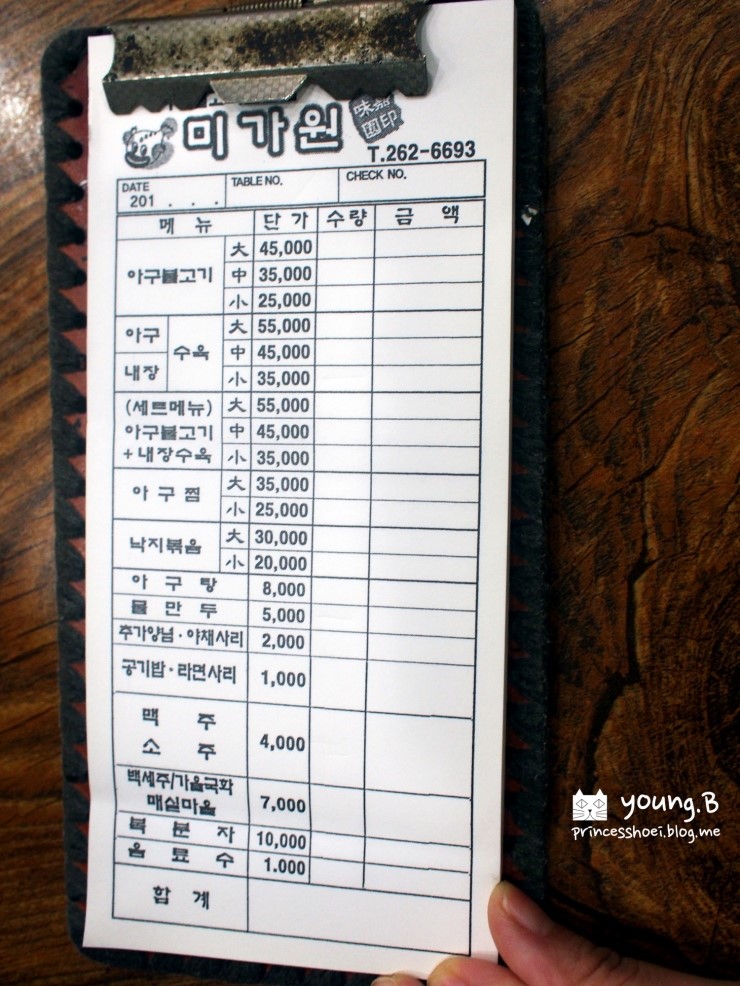 미가원 味嘉園印
T.262-6693
DATE 201 . . . TABLE NO. CHECK NO.
메 뉴 단 가 수 량 금 액
아구불고기 大 45,000
中 35,000
小 25,000
아구 내장 수육 大 55,000
中 45,000
小 35,000
(세트메뉴) 大 55,000
아구불고기 中 45,000
+내장수육 小 35,000
아 구 찜 大 35,000
小 25,000
낙지볶음 大 30,000
小 20,000
아 구 탕 8,000
물 만 두 5,000
추가양념·야채사리 2,000
공기밥·라면사리 1,000
맥 주
소 주 4,000
백세주/가을국화
매실마을 7,000
복 분 자 10,000
음 료 수 1.000
합 계
young.B
princesshoei.blog.me